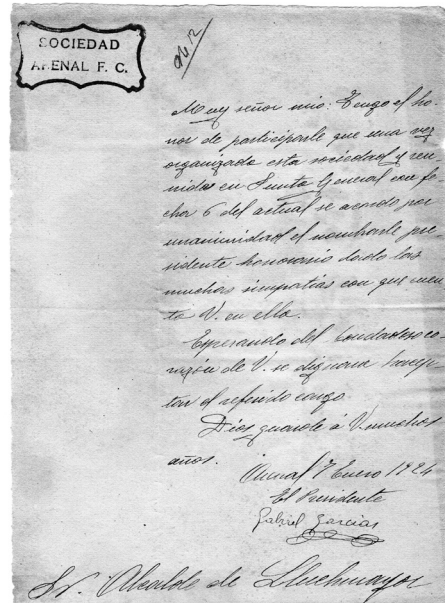 SOCIEDAD
ARENAL F. C.
Muy señor mio: Tengo el ho-
nor de participarle que una vez
organizada esta sociedad y reu-
nidos en Junta General con fe-
cha 6 del actual se acordo por
unanimidad el nombrarle pre
sidente honorario dado las
muchas simpatias con que cuen-
ta V. en ella.
Esperando del bondadoso co-
razón de V. se dignara
el referido cargo.
Dios guarde á V. muchos
años.
Arenal 7 Enero 1924
El Presidente
Gabriel Garcias
Sr. Alcalde de Lluchmayor